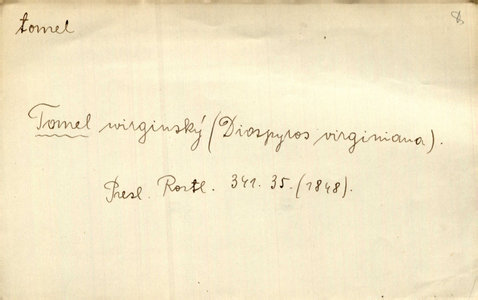 tomel
Tomel wirginský (Diospyros virginiana).
Presl. Rostl. 341. 35. (1848).